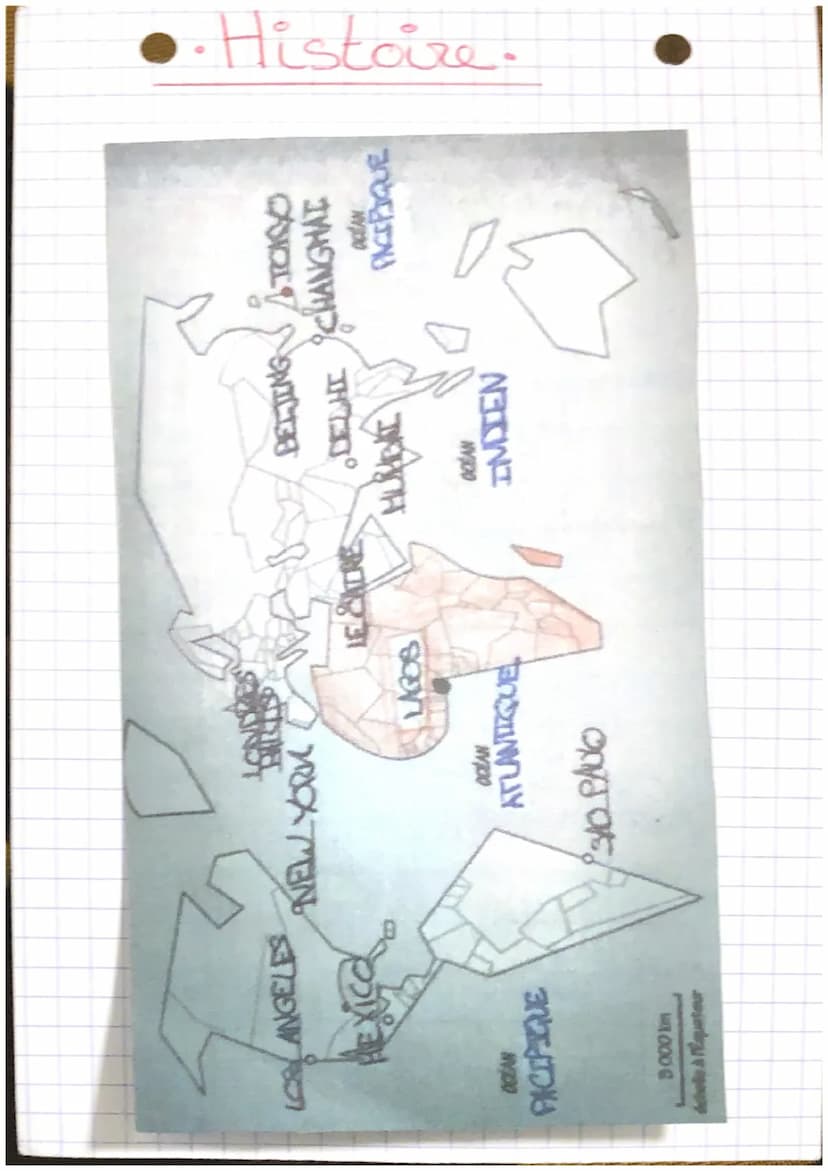 . Histoire.
TOKYO
CHANGHAI
OCÉAN
PACIPIQUE
BEIJING
DELHI
MUMBAI
OCÉAN
INDIEN
LE CAIRE
LAGOS
LONDRES
PARIS
NEW YORK
OCÉAN
ATLANTIQUE
SAO PAUO
LOS ANGELES
MEXICO
OCÉAN
PACIPIQUE
3 000 km
échelle à l'Équateur